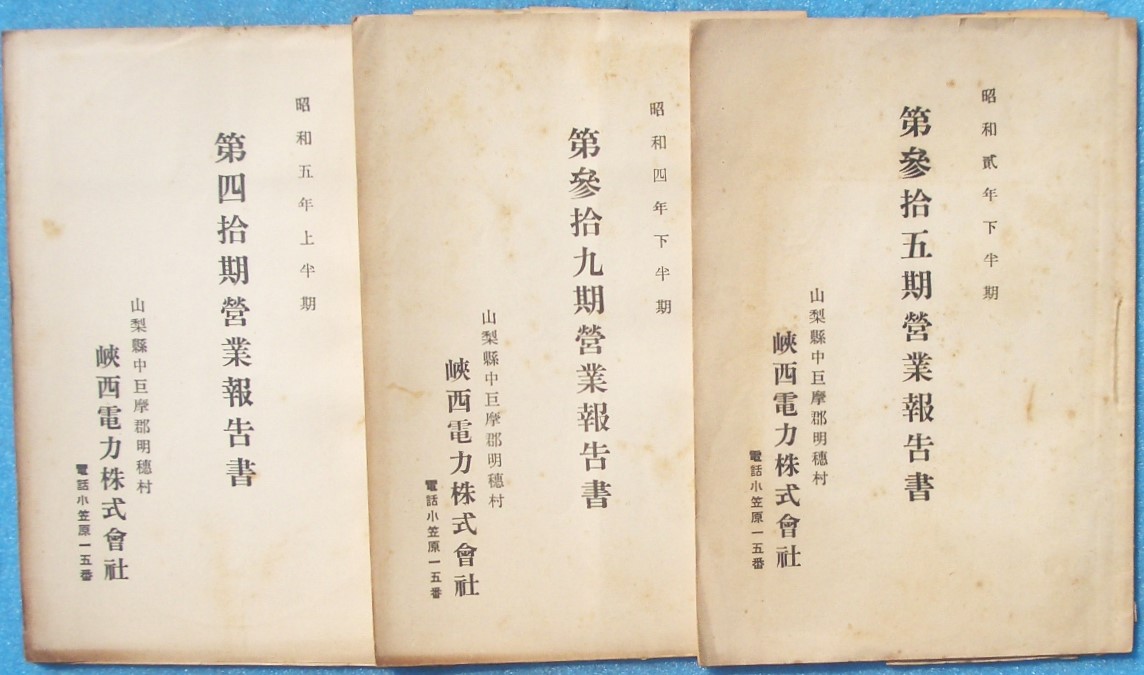 昭和貳年下半期
第參拾五期營業報告書
山梨縣中巨摩郡明穗村
峽西電力株式會社
電話小笠原一五番
昭和四年下半期
第參拾九期營業報告書
山梨縣中巨摩郡明穗村
峽西電力株式會社
電話小笠原一五番
昭和五年上半期
第四拾期營業報告書
山梨縣中巨摩郡明穗村
峽西電力株式會社
電話小笠原一五番